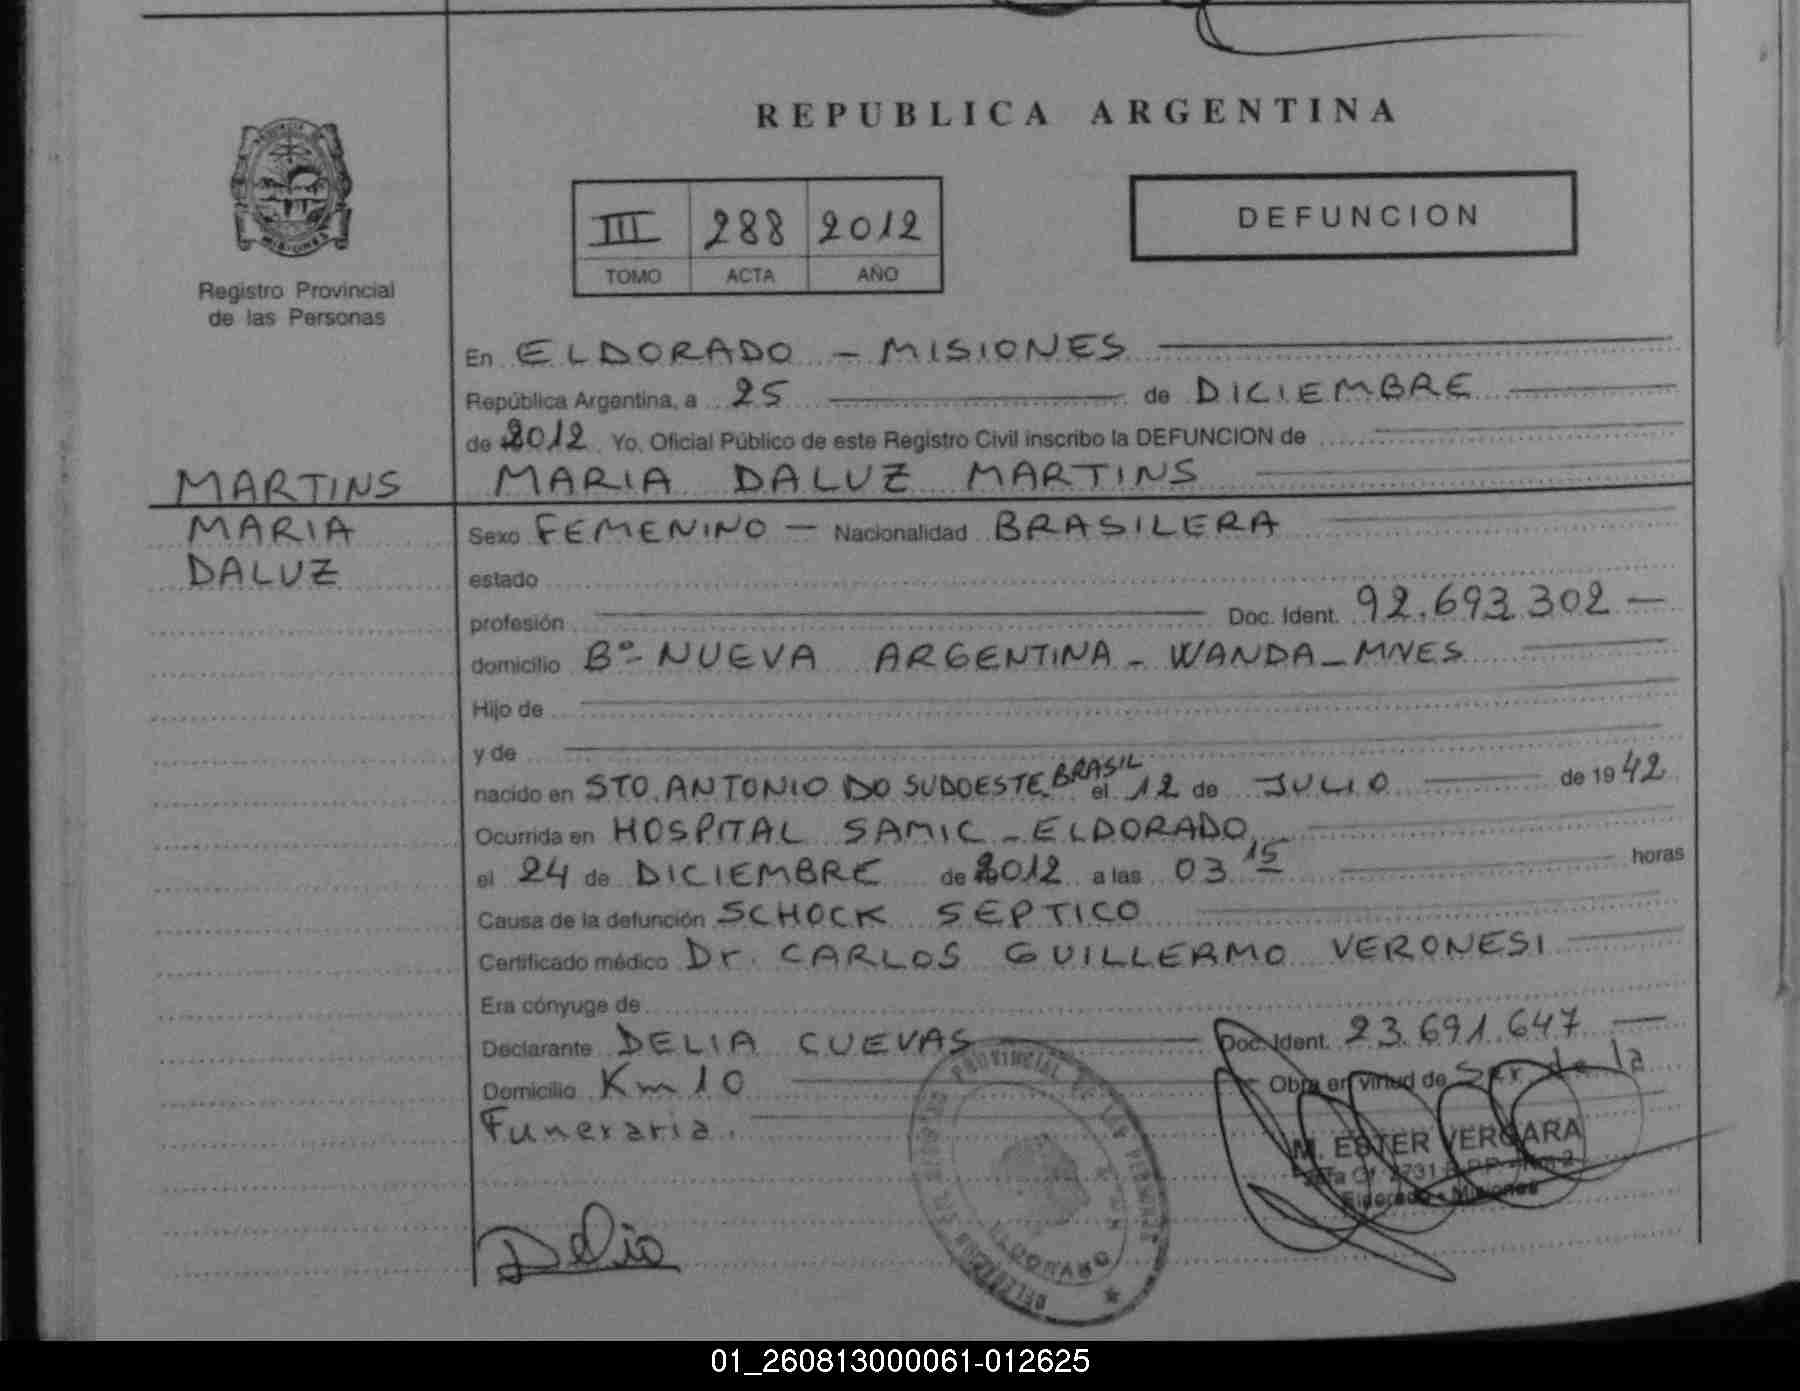 REPUBLICA ARGENTINA
III 288 2012
TOMO ACTA AÑO
DEFUNCION
MISIONES
Registro Provincial
de las Personas
En ELDORADO - MISIONES
República Argentina, a 25 de DICIEMBRE
de 2012. Yo, Oficial Público de este Registro Civil inscribo la DEFUNCION de
MARTINS
MARIA
DALUZ
MARIA DALUZ MARTINS
Sexo FEMENINO - Nacionalidad BRASILERA
estado
profesión Doc. Ident. 92.693.302 -
domicilio Bº- NUEVA ARGENTINA - WANDA - MNES
Hijo de
y de
nacido en STO. ANTONIO DO SUDOESTE BRASIL el 12 de JULIO de 1942
Ocurrida en HOSPITAL SAMIC - ELDORADO
el 24 de DICIEMBRE de 2012 a las 03 15 horas
Causa de la defunción SCHOCK SEPTICO
Certificado médico Dr. CARLOS GUILLERMO VERONESI
Era cónyuge de
Declarante DELIA CUEVAS Doc. Ident. 23.691.647 -
Domicilio Km 10 Obra en virtud de Ser de la
Funeraria.
Delia
PROVINCIAL DE LAS PERSONAS
ELDORADO
M. ESTER VERGARA
Eldorado - Misiones
01_260813000061-012625